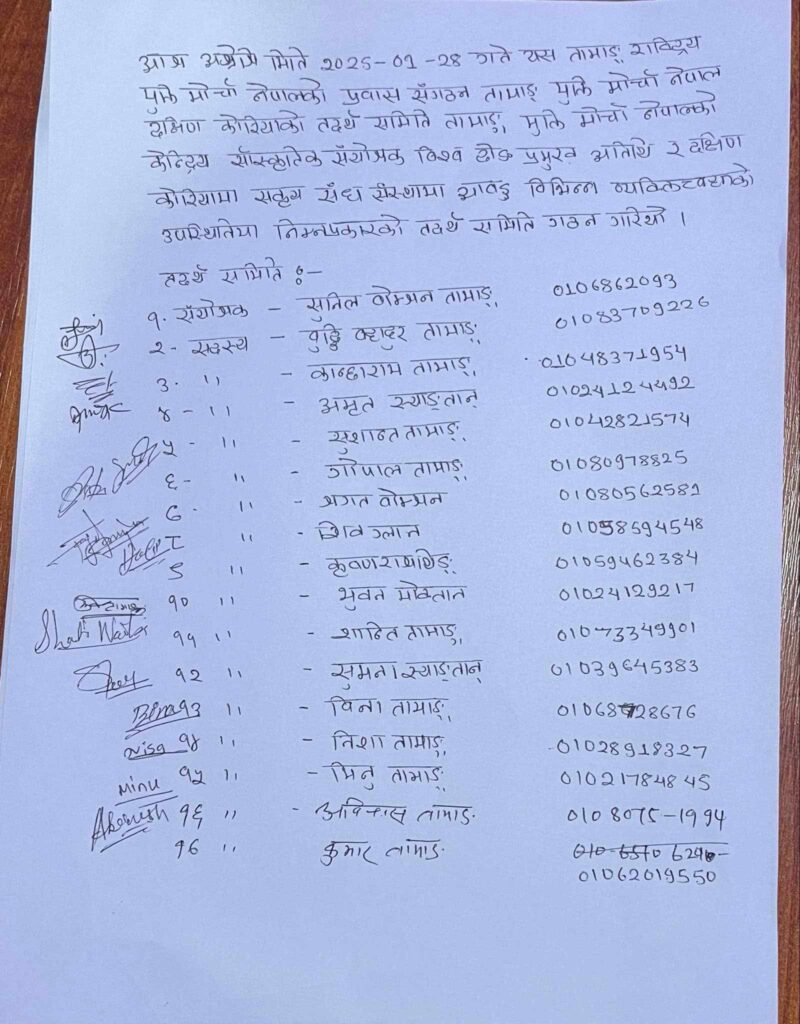 आज अंग्रेजि मिति 2025-01-28 गते यस तामाङ् राष्ट्रिय
मुक्ति मोर्चा नेपालको प्रवास संगठन तामाङ् मुक्ति मोर्चा नेपाल
दक्षिण कोरियाको तदर्थ समिति तामाङ्, मुक्ति मोर्चा नेपालको
केन्द्रिय साँस्कृतिक संयोजक विश्व दोङ प्रमुख अतिथि र दक्षिण
कोरियामा सक्रय संघ संस्थामा आवद्ध विभिन्न व्यक्तित्वहरूको
उपस्थितिमा निम्नप्रकारको तदर्थ समिति गठन गरियो ।
तदर्थ समिति :-
१. संयोजक - सुनिल वोम्जन तामाङ् 0106862093
२- सदस्य - वुद्धि वहादुर तामाङ् 01083709226
३. " - कान्छाराम तामाङ् 01048371954
४ - " - अमृत स्याङ्तान् 01024124492
५ - " - सुशान्त तामाङ् 01042821574
६ - " - गोपाल तामाङ् 01080978825
७ - " - जगत वोम्जन 01080562581
८ " - शिव ग्लान 01058594548
९ " - कृष्णराम 01059462384
१० " - भुवन मोक्तान 01024129217
Shanti
११ " - शान्ति तामाङ् 01073349901
१२ " - सुमना स्याङ्तान् 01039645383
Bina १३ " - विना तामाङ् 28676
Nisa १४ " - निशा तामाङ् 01028918327
Minu १५ " - मिनु तामाङ् 01021784845
Abinash १६ " - अविनास तामाङ 010 8075-1994
१७ " कुमार तामाङ
01062019550